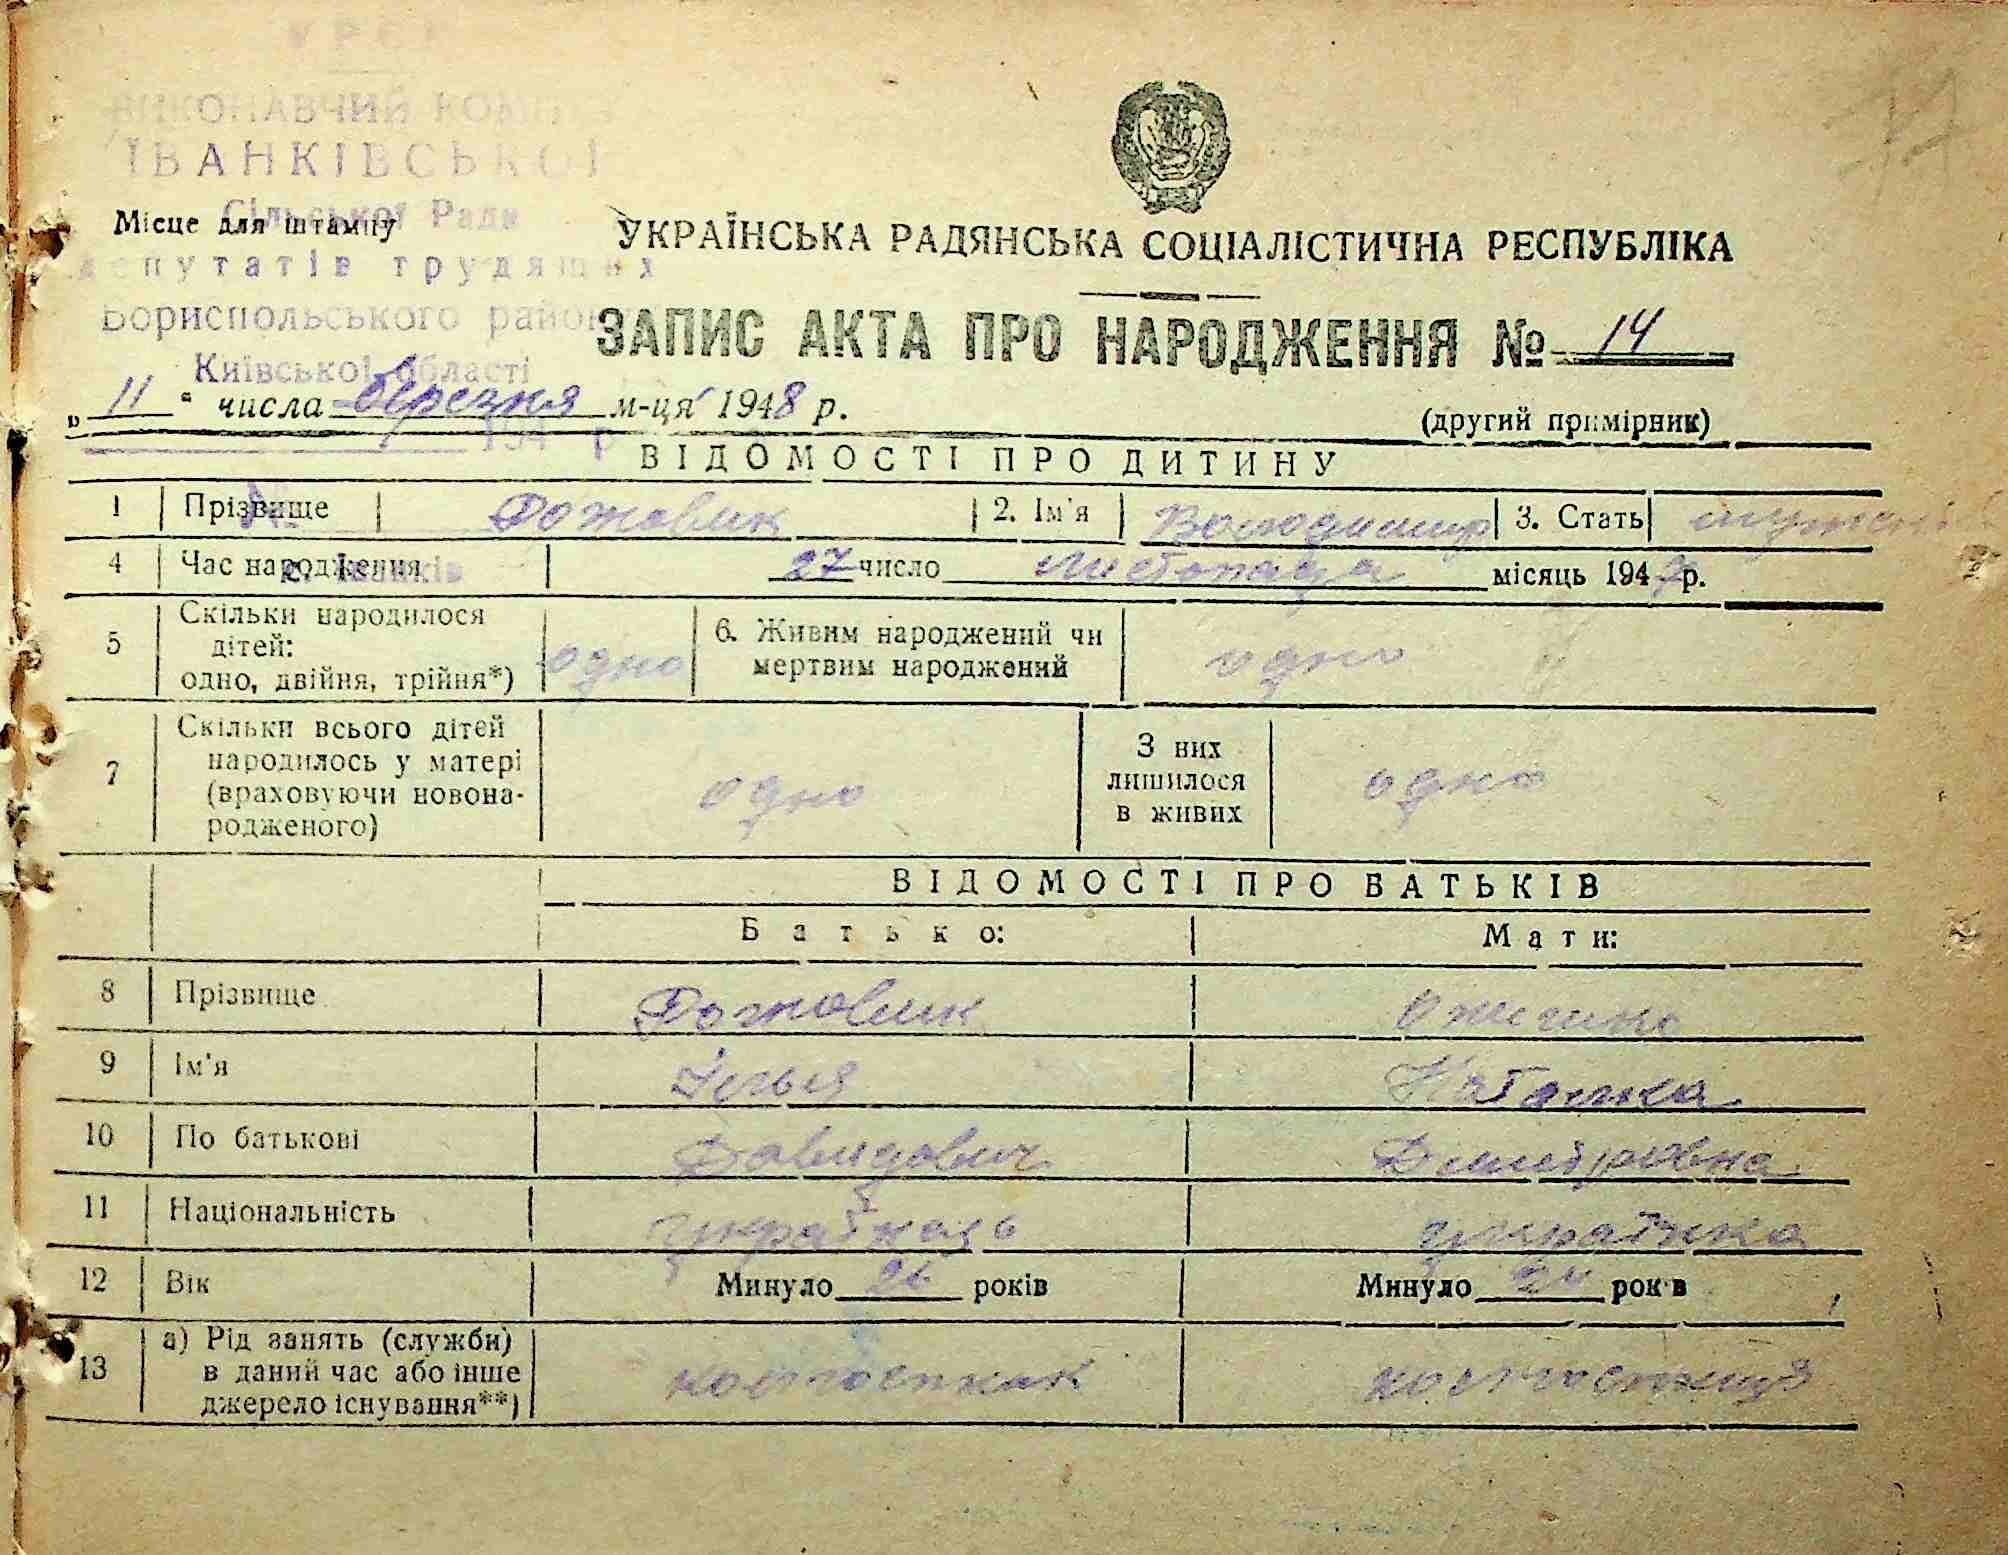 УРСР
ВИКОНАВЧИЙ КОМІТЕТ
ІВАНКІВСЬКОЇ
Сільської Ради
депутатів трудящих
Бориспольського району
Київської області
194 р
с. Іванків
Місце для штампу
УКРАЇНСЬКА РАДЯНСЬКА СОЦІАЛІСТИЧНА РЕСПУБЛІКА
ЗАПИС АКТА ПРО НАРОДЖЕННЯ № 14
„11“ числа березня м-ця 1948 р.
(другий примірник)
ВІДОМОСТІ ПРО ДИТИНУ
1 Прізвище 2. Ім'я Володимир 3. Стать
4 Час народження 27 число листопада місяць 194 р.
5 Скільки народилося дітей: одно, двійня, трійня*) одно 6. Живим народжений чи мертвим народжений одно
7 Скільки всього дітей народилось у матері (враховуючи новонародженого) одно З них лишилося в живих одно
ВІДОМОСТІ ПРО БАТЬКІВ
Батько: Мати:
8 Прізвище
9 Ім'я Ілья Наталка
10 По батькові Давидович Дмитровна
11 Національність українець українка
12 Вік Минуло 26 років Минуло років
13 а) Рід занять (служби) в даний час або інше джерело існування**) колгоспник колгоспниця